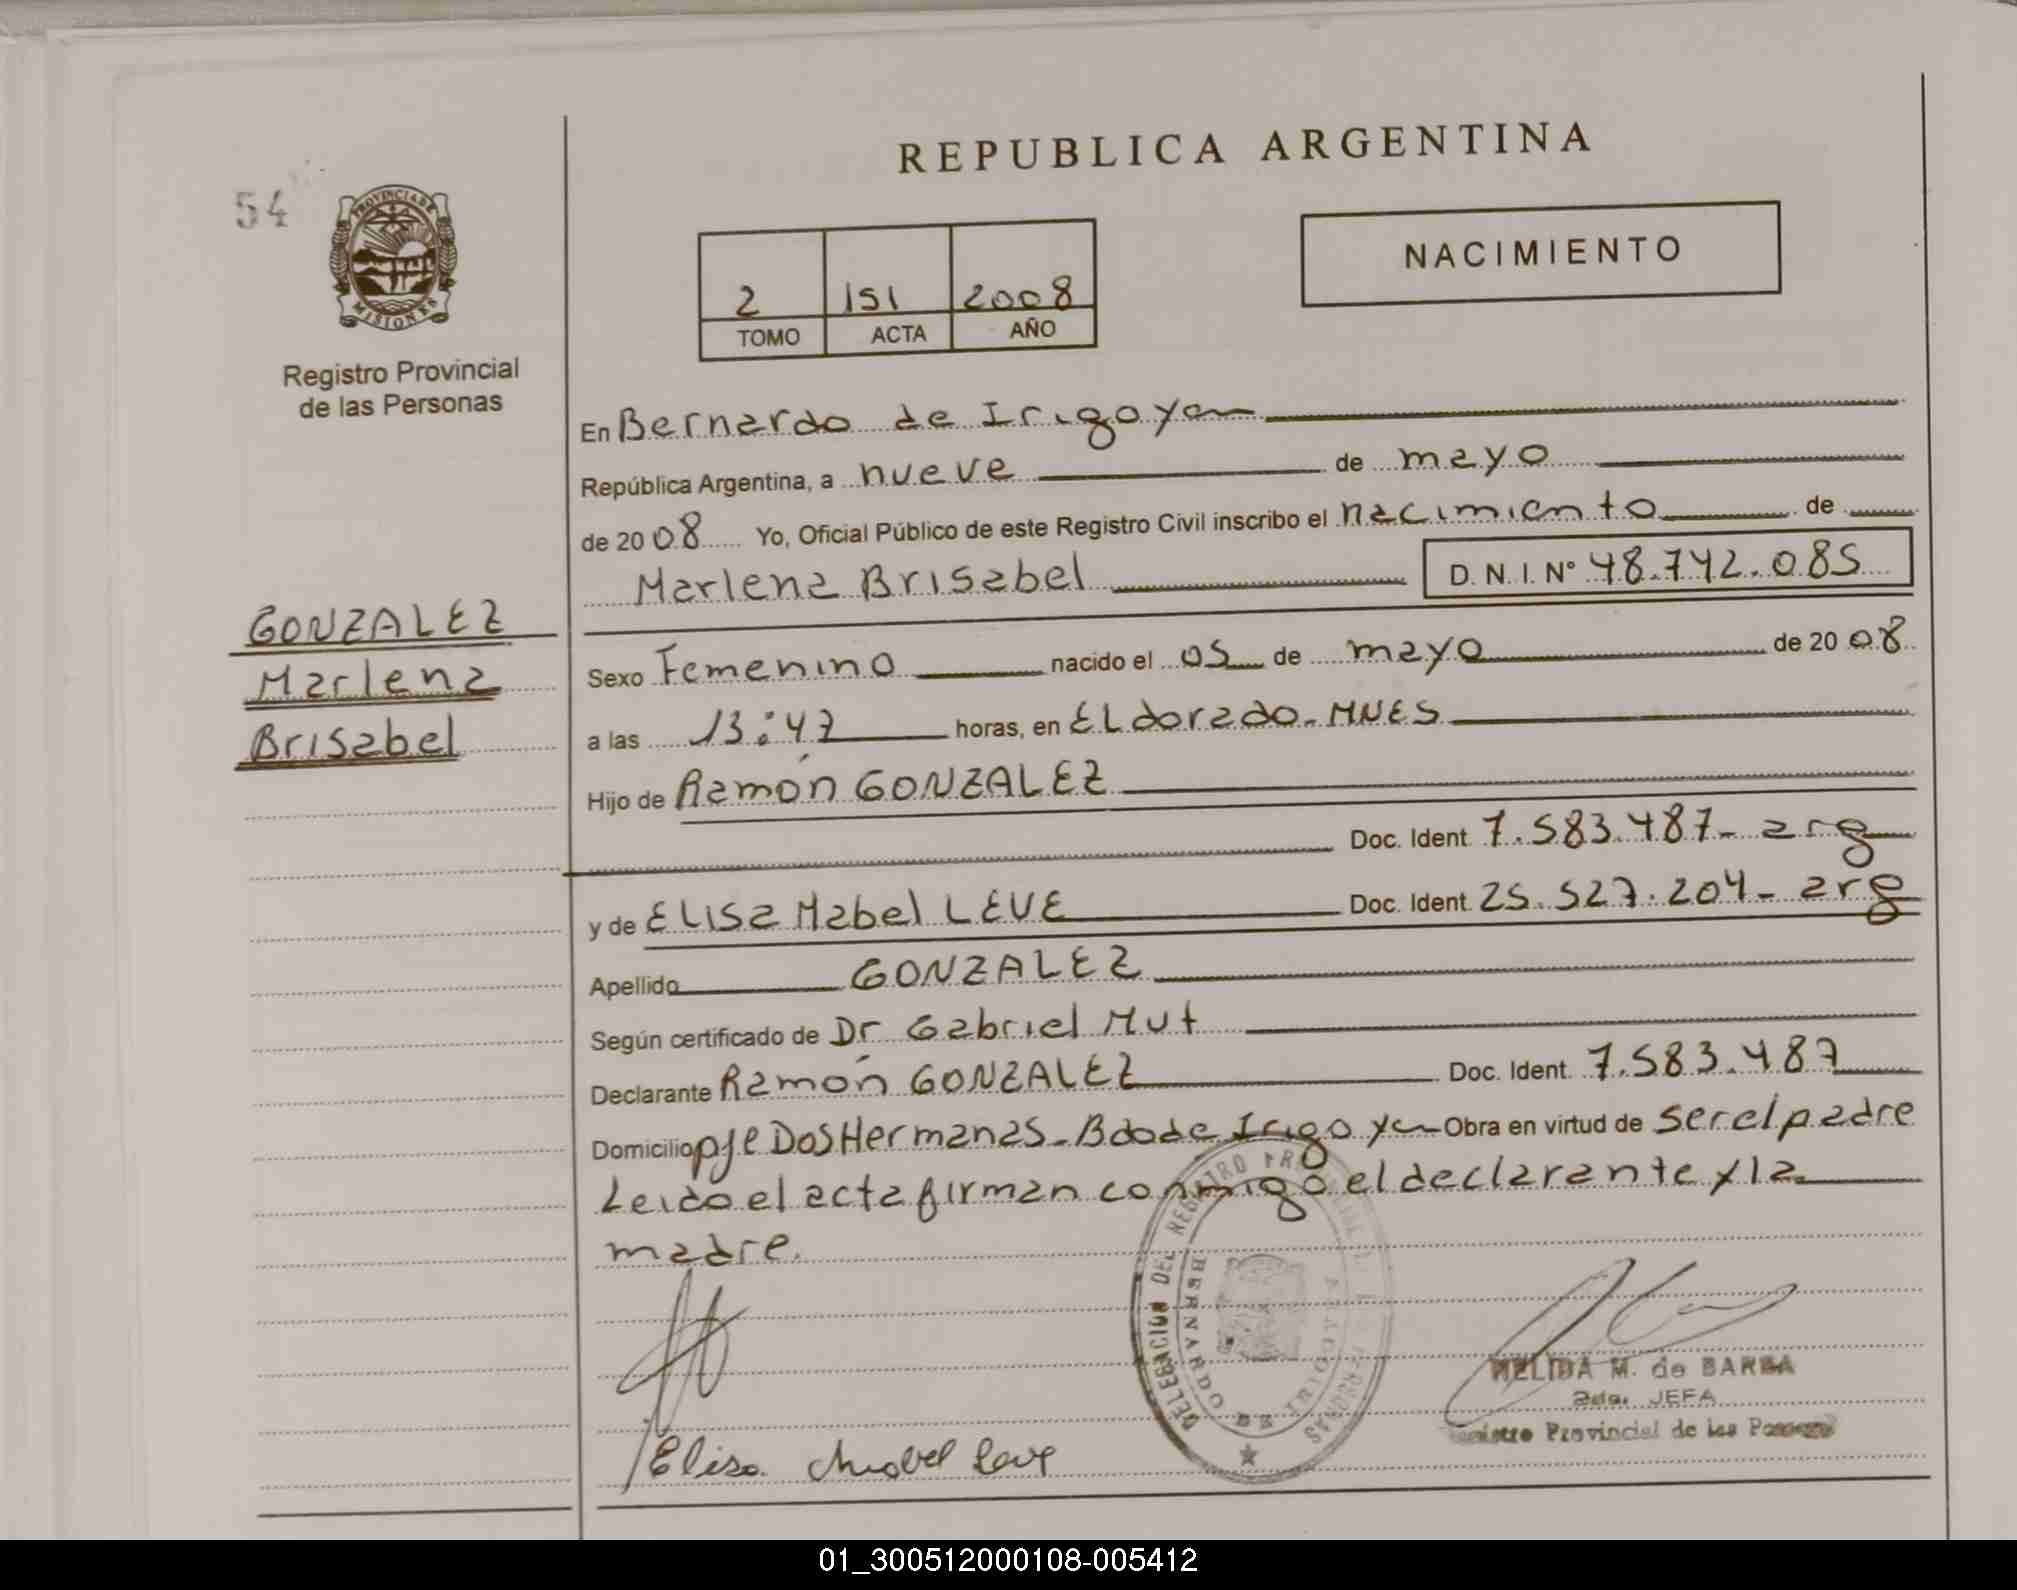 REPUBLICA ARGENTINA
54
PROVINCIA DE MISIONES
Registro Provincial
de las Personas
NACIMIENTO
2 151 2008
TOMO ACTA AÑO
En Bernardo de Irigoyen
República Argentina, a nueve de mayo
de 2008 Yo, Oficial Público de este Registro Civil inscribo el nacimiento de
Marlena Brisabel D.N.I. Nº 48.742.085
GONZALEZ
Marlena
Brisabel
Sexo Femenino nacido el 05 de mayo de 2008
a las 13:47 horas, en ELdorado-MNES
Hijo de Ramón GONZALEZ
Doc. Ident. 7.583.487- arg
y de ELisa Mabel LEVE Doc. Ident. 25.527.204- arg
Apellido GONZALEZ
Según certificado de Dr Gabriel Mut
Declarante Ramón GONZALEZ Doc. Ident. 7.583.487
Domicilio pje Dos Hermanas-Bdo de Irigoyen Obra en virtud de ser el padre
Leido el acta firman conmigo el declarante y la
madre.
DELEGACION DEL REGISTRO PROVINCIAL DE LAS PERSONAS
BERNARDO DE IRIGOYEN
NELIDA M. de BARBA
2da. JEFA
Registro Provincial de las Personas
Elisa Mabel Leve
01_300512000108-005412